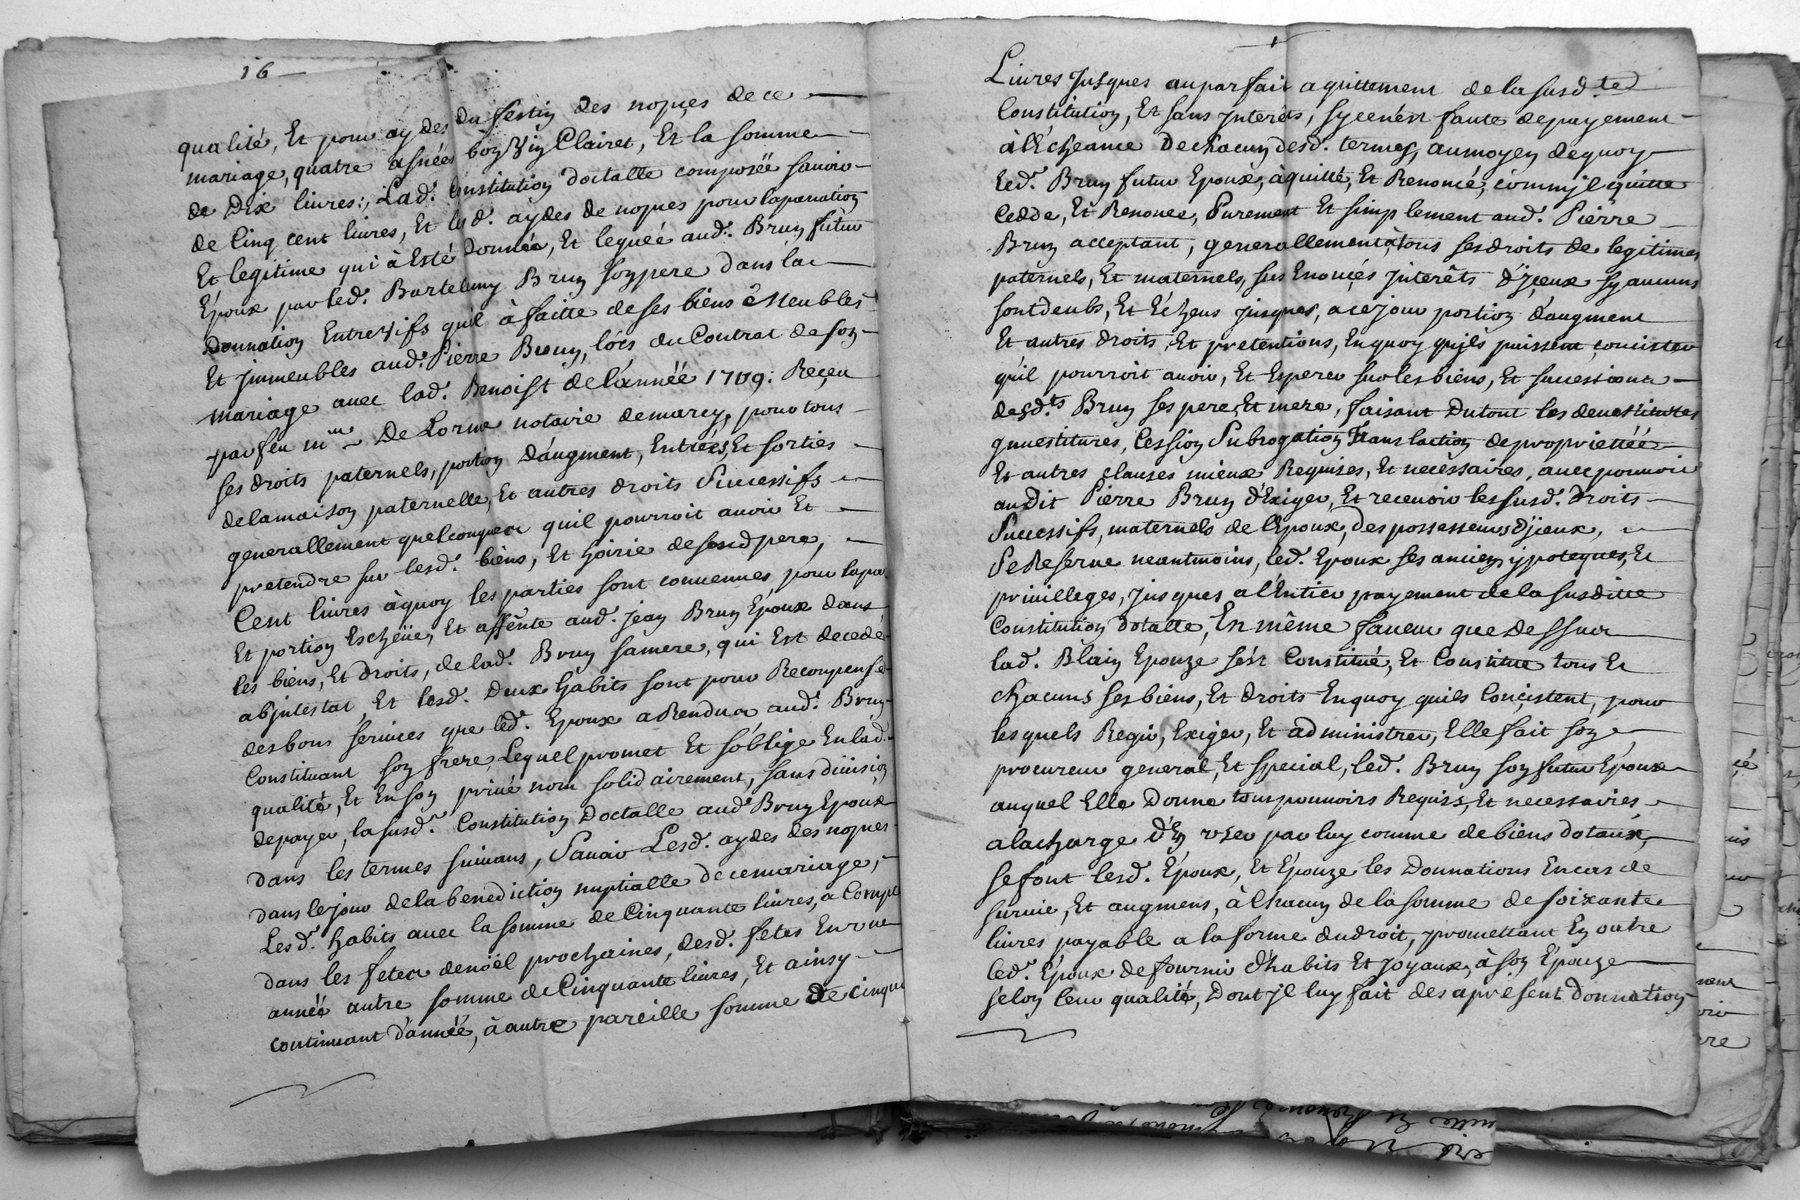 16
qualité, Et pour aydes du festin des nopces de ce
mariage, quatre asnées bon Vin Clairet, Et la somme
de Dix livres:, Lad. Constitution doctalle composée sauoir
de Cinq cent livres, Et lesd. aydes de nopces pour la portion
Et legitime qui à Esté Donnée, Et leguée aud. Brun futur
Epoux par led. Bartelemy Brun son pere dans la
Donnation Entrevifs qu'il à faitte de ses biens Meubles
Et jmmeubles aud. Pierre Brun, lors du Contrat de son
mariage auec lad. Benoist de l'année 1709: Reçeu
par feu me De Lorme notaire de marcy, pour tous
ses droits paternels, portion D'augment, Entrées, Et sorties
de la maison paternelle, Et autres droits Successifs
generallement quelconques qu'il pourroit auoir Et
pretendre sur lesd. biens, Et hoirie desond pere,
Cent livres à quoy les parties sont conuenues, pour la pa
Et portion Escheüe, Et afferte aud. jean Brun Epoux dans
les biens, Et Droits, de lad. Brun sa mere, qui Est decedé
abjntestat, Et lesd. Deux habits sont pour Recompense
des bons seruices que led. Epoux a Rendus aud. Brun
Constituant son frere, Lequel promet Et s'oblige En lad.
qualité, Et En son priué nom solidairement, sans diuision
de payer, la susd. Constitution Doctalle aud. Brun Epoux
dans les termes suiuans, Sauoir Lesd. aydes des nopces
dans le jour de la benediction nuptialle de ce mariage,
Lesd. habits auec la somme de Cinquante livres, a Compte
dans les fetes de noël prochaines, desd. fetes En vne
année autre somme de Cinquante livres, Et ainsy
continuant d'année, à autre pareille somme de cinqua
Livres Jusques au parfait aquittement de la susd.te
Constitution, Et sans jnterêts, sy ce n'est faute de payement
à l'Echeance De chacun desd. termes, au moyen de quoy
led. Brun futur Epoux, à quitté, Et Renoncé, comm'jl quitte
Cedde, Et Renonce, Purement Et simplement aud. Pierre
Brun acceptant, generallement à tous ses droits de legitimes
paternels, Et maternels, sus Enonçés jnterêts d'jçeux sy aucuns
sont deubs, Et Echeus jusques, a ce jour portion d'augment
Et autres droits Et pretentions, En quoy qu'jls puissent conçister
qu'il pourroit auoir, Et Esperer sur les biens, Et successions
desd.ts Brun ses pere, Et mere, faisant Du tout les deuestitures
jnuestitures, Cession Subrogation Translation de proprietée
Et autres clauses mieux Requises, Et necessaires, auec pouuoir
audit Pierre Brun d'Exiger, Et receuoir les susd. Droits
Successifs, maternels de l'Epoux, des possesseurs D'jceux,
Se Reserue neantmoins, led. Epoux ses anciens, ypoteques, Et
priuilleges, jusques a l'Entier payement de la susditte
Constitution Dotalle, En même faueur que Dessus
lad. Blain Epouze s'est Constitué, Et Constitue tous Et
chacuns ses biens, Et droits En quoy qu'ils Conçistent, pour
lesquels Regir, Exiger, Et administrer, Elle fait son
procureur general, Et special, led. Brun son futur Epoux
auquel Elle Donne tous pouuoirs Requis, Et necessaires
a la charge d'En vser par luy comme de biens dotaux,
se font lesd. Epoux, Et Epouze les Donnations En cas de
suruie, Et augmens, à Chacun de la somme de soixante
livres payable a la forme du droit, promettant En outre
led. Epoux de fournir d'habits Et Joyaux, à son Epouze
selon leur qualité, Dont jl luy fait des a present Donnation